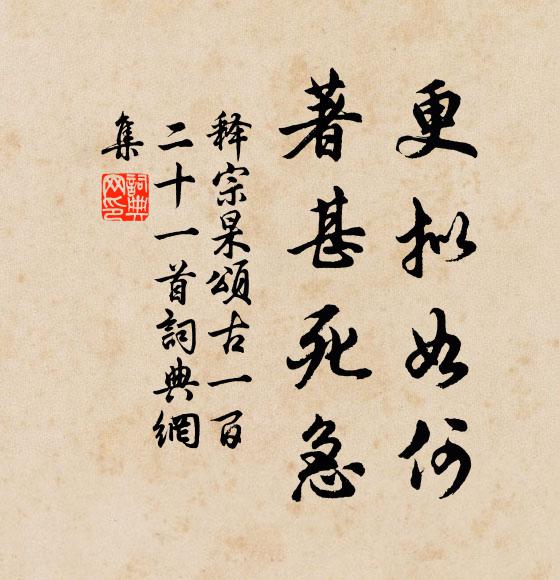 更拟如何
著甚死急
释宗杲頌古一百
二十一首詞典網
集
詞典
网印